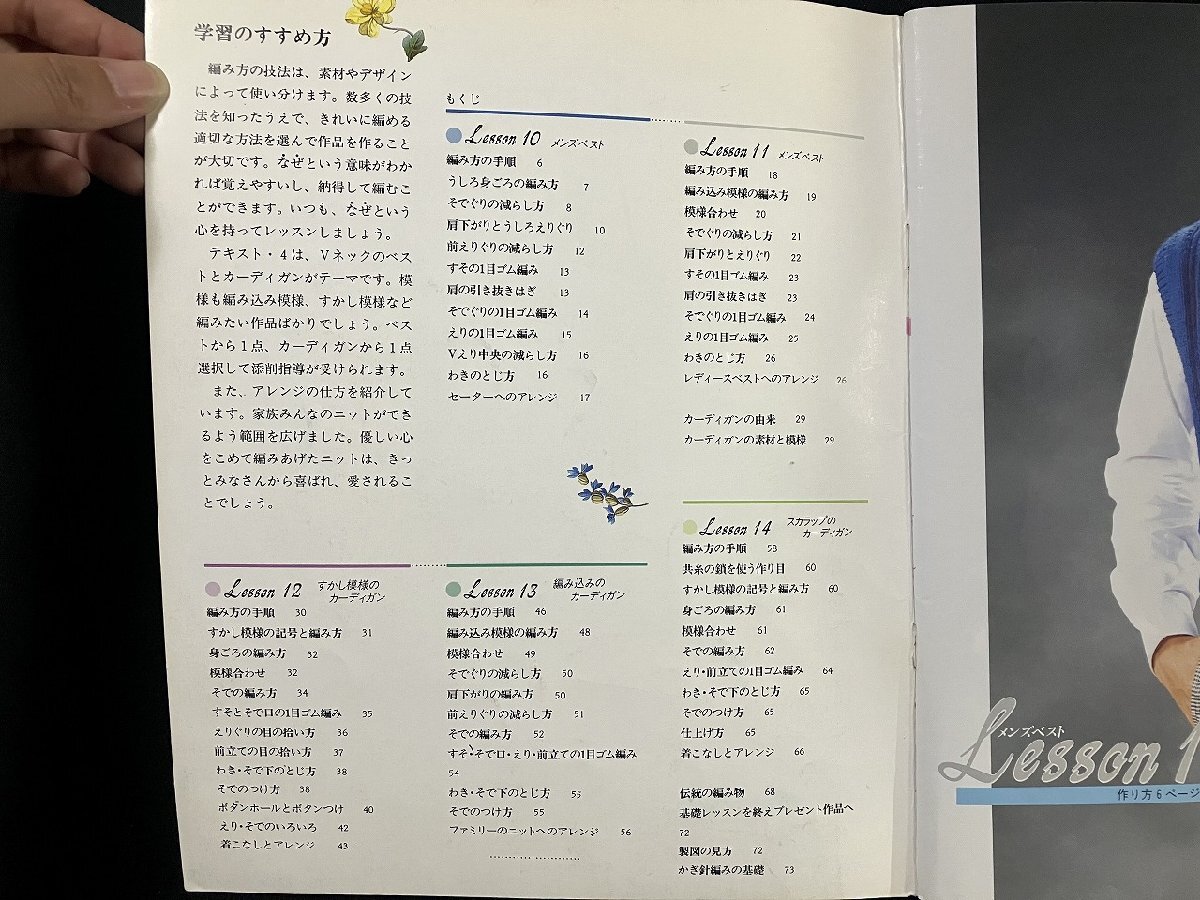 学習のすすめ方
編み方の技法は、素材やデザイン
によって使い分けます。数多くの技
法を知ったうえで、きれいに編める
適切な方法を選んで作品を作ること
が大切です。なぜという意味がわか
れば覚えやすいし、納得して編むこ
とができます。いつも、なぜという
心を持ってレッスンしましょう。
テキスト・4は、Vネックのベス
トとカーディガンがテーマです。模
様も編み込み模様、すかし模様など
編みたい作品ばかりでしょう。ベス
トから1点、カーディガンから1点
選択して添削指導が受けられます。
また、アレンジの仕方を紹介して
います。家族みんなのニットができ
るよう範囲を広げました。優しい心
をこめて編みあげたニットは、きっ
とみなさんから喜ばれ、愛されるこ
とでしょう。
もくじ
Lesson 10 メンズベスト
編み方の手順 6
うしろ身ごろの編み方 7
そでぐりの減らし方 8
肩下がりとうしろえりぐり 10
前えりぐりの減らし方 12
すその1目ゴム編み 13
肩の引き抜きはぎ 13
そでぐりの1目ゴム編み 14
えりの1目ゴム編み 15
Vえり中央の減らし方 16
わきのとじ方 16
セーターへのアレンジ 17
Lesson 11 メンズベスト
編み方の手順 18
編み込み模様の編み方 19
模様合わせ 20
そでぐりの減らし方 21
肩下がりとえりぐり 22
すその1目ゴム編み 23
肩の引き抜きはぎ 23
そでぐりの1目ゴム編み 24
えりの1目ゴム編み 25
わきのとじ方 26
レディースベストへのアレンジ 26
カーディガンの由来 29
カーディガンの素材と模様 29
Lesson 12 すかし模様の
カーディガン
編み方の手順 30
すかし模様の記号と編み方 31
身ごろの編み方 32
模様合わせ 32
そでの編み方 34
すそとそで口の1目ゴム編み 35
えりぐりの目の拾い方 36
前立ての目の拾い方 37
わき・そで下のとじ方 38
そでのつけ方 38
ボタンホールとボタンつけ 40
えり・そでのいろいろ 42
着こなしとアレンジ 43
Lesson 13 編み込みの
カーディガン
編み方の手順 46
編み込み模様の編み方 48
模様合わせ 49
そでぐりの減らし方 50
肩下がりの編み方 50
前えりぐりの減らし方 51
そでの編み方 52
すそ・そで口・えり・前立ての1目ゴム編み
54
わき・そで下のとじ方 55
そでのつけ方 55
ファミリーのニットへのアレンジ 56
Lesson 14 スカラップの
カーディガン
編み方の手順 58
共糸の鎖を使う作り目 60
すかし模様の記号と編み方 60
身ごろの編み方 61
模様合わせ 61
そでの編み方 62
えり・前立ての1目ゴム編み 64
わき・そで下のとじ方 65
そでのつけ方 65
仕上げ方 65
着こなしとアレンジ 66
伝統の編み物 68
基礎レッスンを終えプレゼント作品へ
72
製図の見方 72
かぎ針編みの基礎 73
メンズベスト
Lesson 1
作り方6ページ